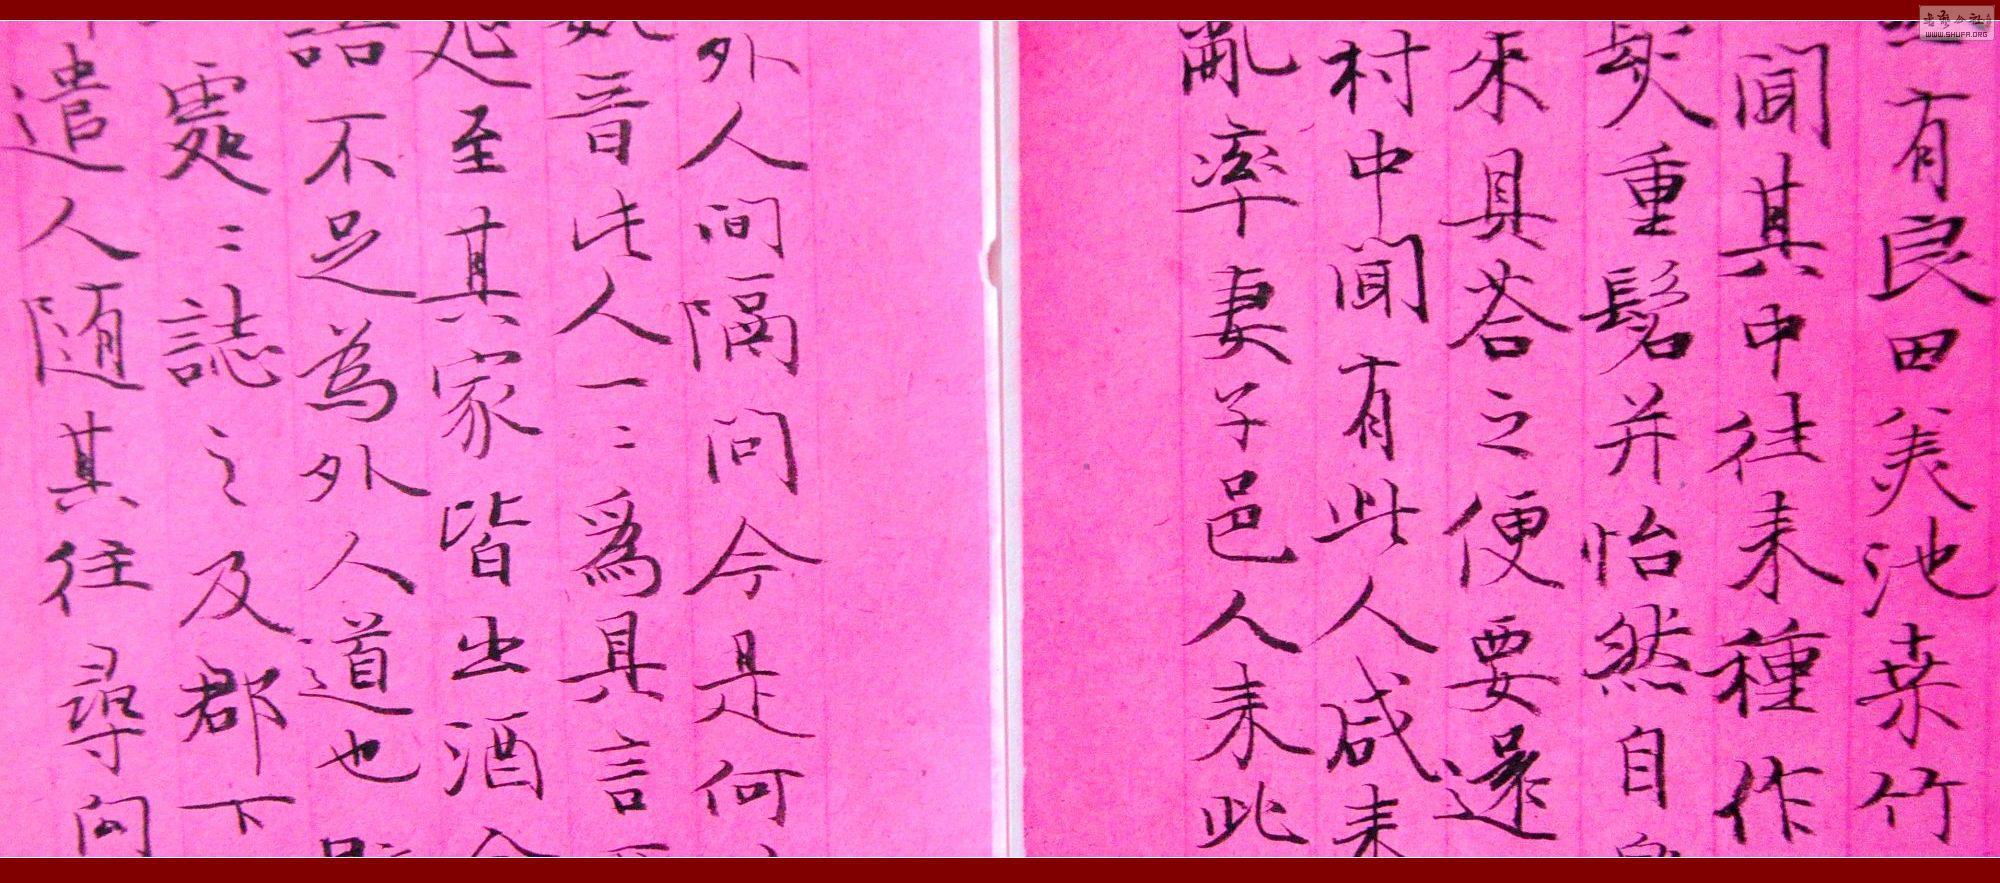 有良田美池桑竹
聞其中往来種作
髮重髫并怡然自
來具荅之便要還
村中聞有此人咸来
亂率妻子邑人来此
外人間隔問今是何
音此人一〻爲具言
延至其家皆出酒
語不足為外人道也
處〻誌之及郡下
遣人随其往尋向
WWW.SHUFA.ORG